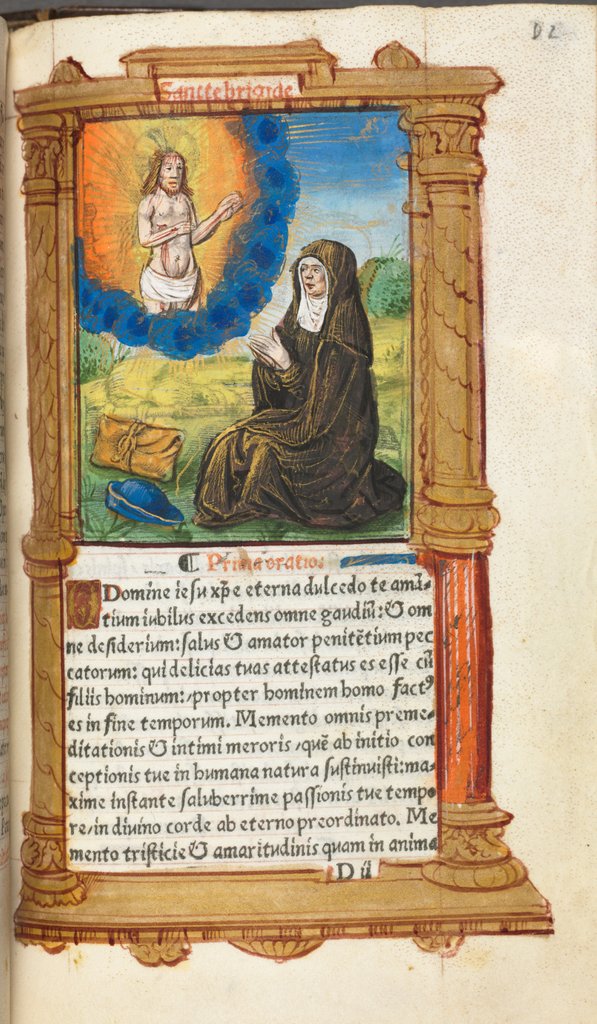 D 2
Sancte brigide
¶ Prima oratio.
O Domine iesu xp̄e eterna dulcedo te amā⸗
tium iubilus excedens omne gaudiū: & om
ne desiderium: salus & amator penitētium pec
catorum: qui delicias tuas attestatus es esse cū
filiis hominum: propter hominem homo factꝰ
es in fine temporum. Memento omnis preme⸗
ditationis & intimi meroris, quē ab initio con
ceptionis tue in humana natura sustinuisti: ma⸗
xime instante saluberrime passionis tue tempo
re, in diuino corde ab eterno preordinato. Me
mento tristicie & amaritudinis quam in anima
D ii